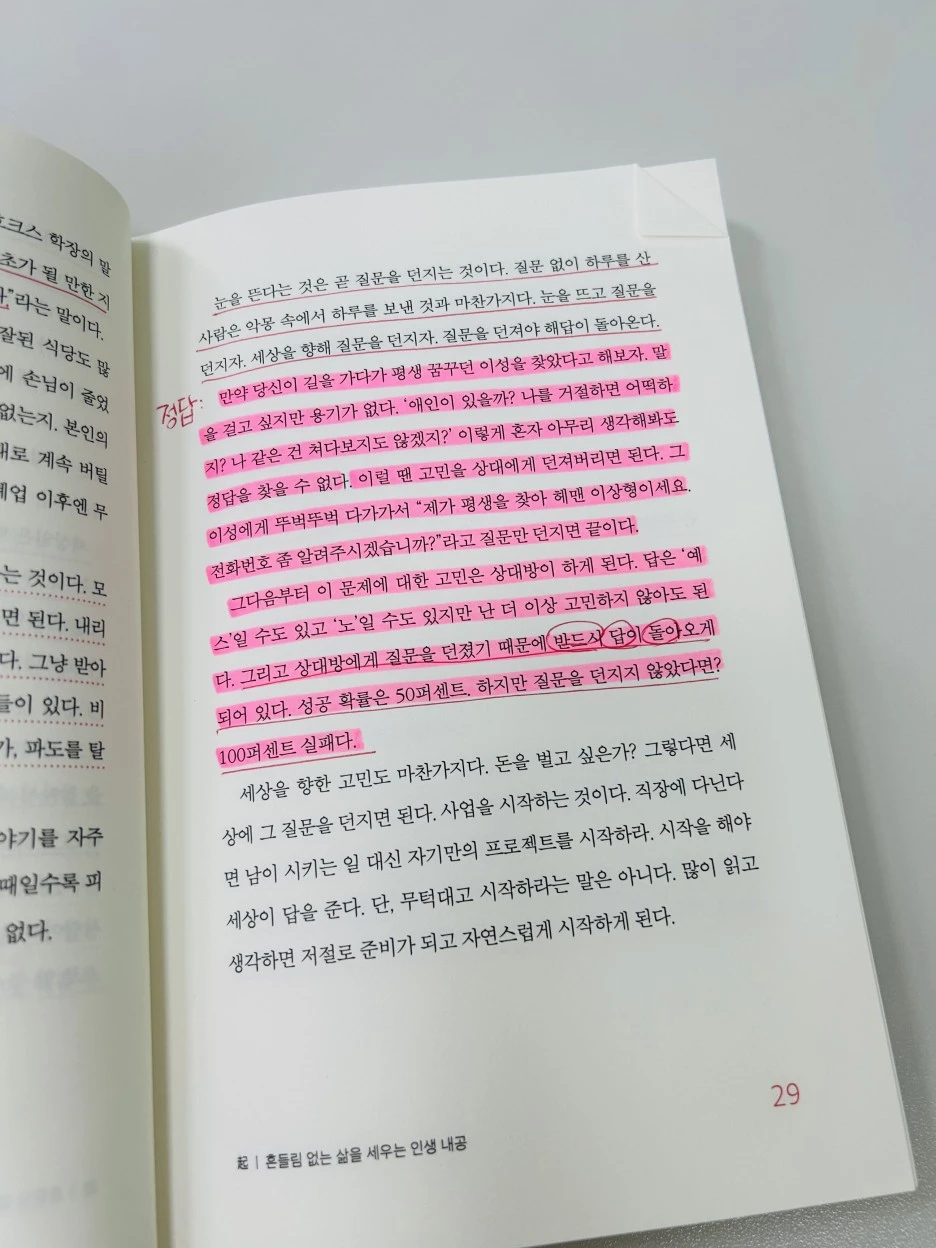 크스 학장의 말
초가 될 만한 지
"라는 말이다.
잘된 식당도 많
에 손님이 줄었
없는지. 본인의
대로 계속 버틸
폐업 이후엔 무
는 것이다. 모
면 된다. 내리
다. 그냥 받아
들이 있다. 비
가, 파도를 탈
야기를 자주
때일수록 피
없다.
눈을 뜬다는 것은 곧 질문을 던지는 것이다. 질문 없이 하루를 산
사람은 악몽 속에서 하루를 보낸 것과 마찬가지다. 눈을 뜨고 질문을
던지자. 세상을 향해 질문을 던지자. 질문을 던져야 해답이 돌아온다.
정답:
만약 당신이 길을 가다가 평생 꿈꾸던 이성을 찾았다고 해보자. 말
을 걸고 싶지만 용기가 없다. '애인이 있을까? 나를 거절하면 어떡하
지? 나 같은 건 쳐다보지도 않겠지?' 이렇게 혼자 아무리 생각해봐도
정답을 찾을 수 없다. 이럴 땐 고민을 상대에게 던져버리면 된다. 그
이성에게 뚜벅뚜벅 다가가서 "제가 평생을 찾아 헤맨 이상형이세요.
전화번호 좀 알려주시겠습니까?"라고 질문만 던지면 끝이다.
그다음부터 이 문제에 대한 고민은 상대방이 하게 된다. 답은 '예
스'일 수도 있고 '노'일 수도 있지만 난 더 이상 고민하지 않아도 된
다. 그리고 상대방에게 질문을 던졌기 때문에 반드시 답이 돌아오게
되어 있다. 성공 확률은 50퍼센트. 하지만 질문을 던지지 않았다면?
100퍼센트 실패다.
세상을 향한 고민도 마찬가지다. 돈을 벌고 싶은가? 그렇다면 세
상에 그 질문을 던지면 된다. 사업을 시작하는 것이다. 직장에 다닌다
면 남이 시키는 일 대신 자기만의 프로젝트를 시작하라. 시작을 해야
세상이 답을 준다. 단, 무턱대고 시작하라는 말은 아니다. 많이 읽고
생각하면 저절로 준비가 되고 자연스럽게 시작하게 된다.
29
起 | 흔들림 없는 삶을 세우는 인생 내공